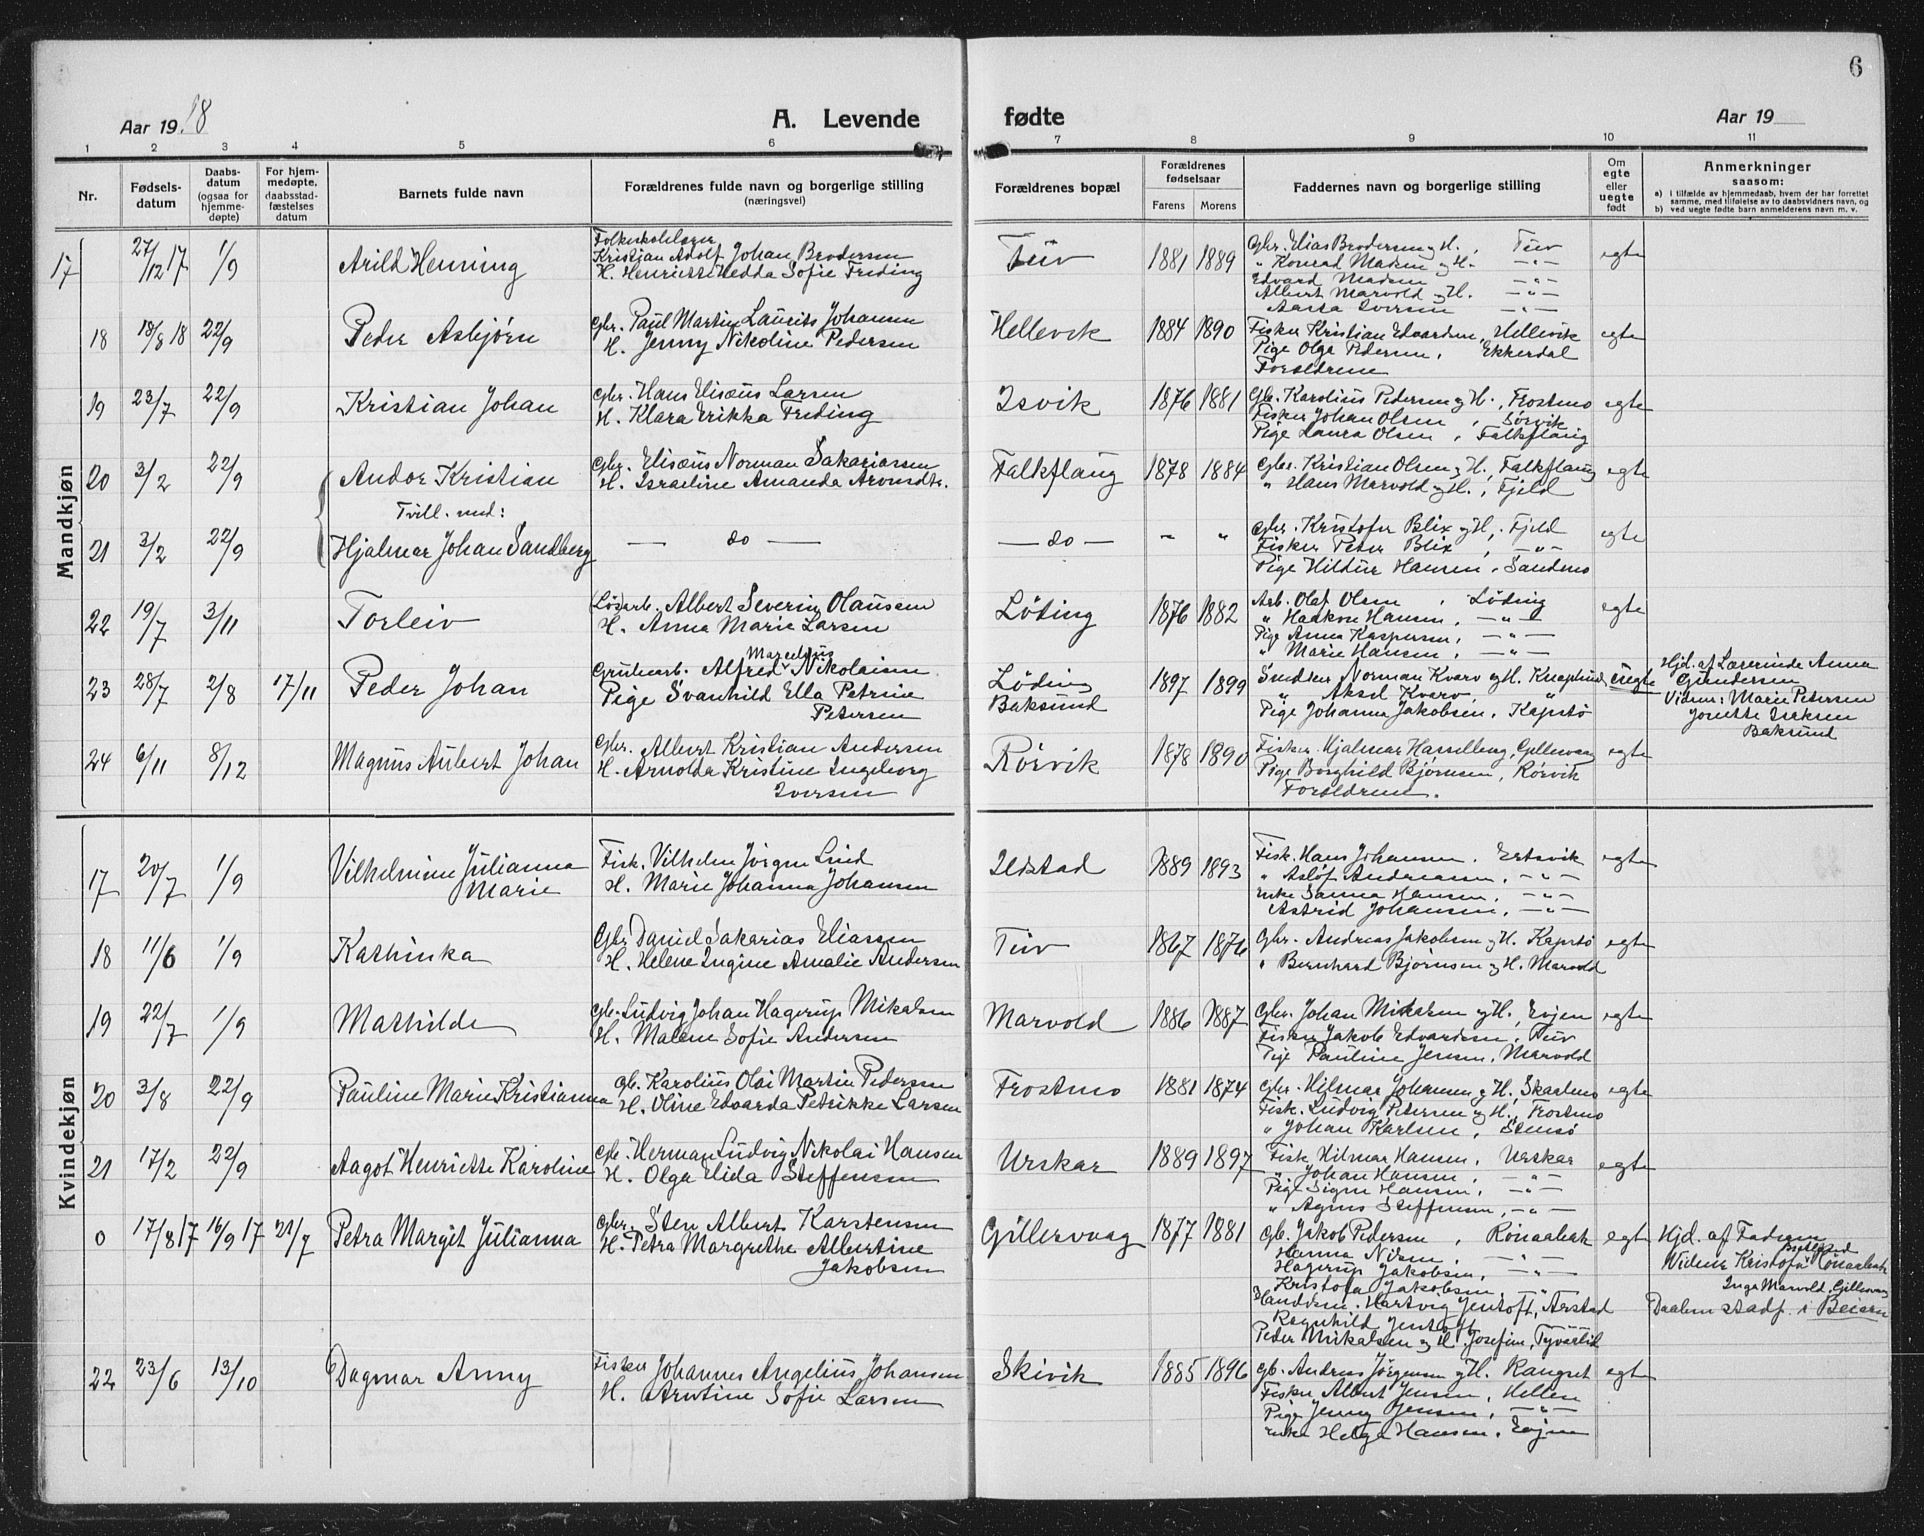 6
Aar 19 18 A. Levende fødte Aar 19
1 2 3 4 5 6 7 8 9 10 11
Nr. Fødselsdatum Daabsdatum (ogsaa for hjemmedøpte) For hjemmedøpte, daabsstadfæstelses datum Barnets fulde navn Forældrenes fulde navn og borgerlige stilling (næringsvei) Forældrenes bopæl Forældrenes fødselsaar Farens Morens Faddernes navn og borgerlige stilling Om egte eller uegte født Anmerkninger saasom:
a) i tilfælde av hjemmedaab, hvem der har forrettet samme, med tilføielse av to daabsvidners navn, og
b) ved uegte fødte barn anmelderens navn m. v.
Mandkjøn
17 27/12 17 1/9 Arild Henning
Folkeskolelærer
Kristian Adolf Johan Brodersen
H. Henriette Hedda Sofie Freding
Tuv 1881 1889
Gbr. Elias Brodersen og H., Tuv
" Konrad Madsen og H. — " —
Edvard Madsen — " —
Albert Marvold og H. — " —
Aasta Iversen — " —
egte
18 18/8 18 22/9 Peder Asbjørn
Gbr. Paul Martin Laurits Johansen
H. Jenny Nikoline Pedersen
Hellevik 1884 1890
Fisker Kristian Edvardsen, Hellevik
Pige Olga Pedersen, Ekkerdal
Forældrene
egte
19 23/7 22/9 Kristian Johan
Gbr. Hans Elisæus Larsen
H. Klara Erikka Freding
Isvik 1876 1881
Gb. Karolius Pedersen og H., Frostmo
Fisker Johan Olsen, Sørvik
Pige Laura Olsen, Falkflaug
egte
20 3/2 22/9 Andor Kristian
Tvill. med:
Gbr. Elisæus Norman Sakariassen
H. Israeline Amanda Arontdtr.
Falkflaug 1878 1884
Gbr. Kristian Olsen og H., Falkflaug
" Hans Marvold og H., Fjeld
egte
21 3/2 22/9 Hjalmar Johan Sandberg
— do —
— do — " "
Gbr. Kristofer Blix og H., Fjeld
Fisker Peter Blix, — " —
Pige Hildur Hansen, Sandmo
egte
22 19/7 3/11 Torleiv
Løsarb. Albert Severin Olausen
H. Anna Marie Larsen
Løding 1876 1882
Arb. Olaf Olsen, Løding
" Haakon Hansen, — " —
Pige Anna Kaspersen, — " —
" Marie Hansen, — " —
egte
23 28/7 2/8 17/11 Peder Johan
Grubearb. Alfred Marelius Nikolaisen
Pige Svanhild Ella Petrine
Petersen
Løding
Baksund 1897 1899
Smed Norman Kvarv og H. Knaplund
" Aksel Kvarv "
Pige Johanna Jakobsen, Kapstø
uegte
Hjd. af Lærerinde Anna
Gundersen
Vidner: Marie Petersen
Josette Eriksen
Baksund
24 6/11 8/12 Magnus Aubert Johan
Gbr. Albert Kristian Andersen
H. Arnolda Kristine Ingeborg
Iversen
Rørvik 1878 1890
Fisker Hjalmar Hasselberg, Gillesvaag
Pige Borghild Bjørnsen, Rørvik
Forældrene.
egte
Kvindekjøn
17 20/7 1/9 Vilhelmine Julianna
Marie
Fisk. Vilhelm Jørgen Lind
H. Marie Johanna Johansen
Ildstad 1889 1893
Fisk. Hans Johansen, Ertsvik
" Asløf Andreassen, — " —
Enke Sanna Hansen, — " —
Astrid Johansen, — " —
egte
18 11/6 1/9 Kathinka
Gbr. Daniel Sakarias Eliassen
H. Helene Ingine Amalie Andersen
Tuv 1867 1876
Gbr. Andreas Jakobsen og H. Kapstø
" Bernhard Bjørnsen og H. Marvold
egte
19 22/7 1/9 Mathilde
Gb. Ludvig Johan Hagerup Mikalsen
H. Malene Sofie Andersen
Marvold 1886 1887
Gbr. Johan Mikalsen og H., Evjen
Fisker Jakob Edvardsen, Tuv
Pige Pauline Jensen, Marvold
egte
20 3/8 22/9 Pauline Marie Kristianna
Gb. Karolius Olai Martin Pedersen
H. Oline Edvarda Petrikke Larsen
Frostmo 1881 1874
Gbr. Hilmar Johansen og H., Skaalmo
Fisk. Ludvig Petersen og H., Frostmo
" Johan Karlsen, Stensø
egte
21 17/2 22/9 Aagot Henriette Karoline
Gb. Herman Ludvig Nikolai Hansen
H. Olga Elida Steffensen
Urskar 1889 1897
Fisk. Hilmar Hansen, Urskar
" Johan Hansen, — " —
Pige Signe Hansen, — " —
" Agnes Steffensen, — " —
egte
0 17/8 17 16/9 17 21/7 Petra Margit Julianna
Gbr. Sten Albert Karstensen
H. Petra Margrethe Albertine
Jakobsen
Gillesvaag 1877 1881
Gb. Jakob Pedersen, Rønaabak
Hanna Nilsen,
Hagerup Jakobsen, — " —
Kristofa Jakobsen, "
Handelsm. Hartvig Jentoft, Arstad
Ragnhild Jentoft
Peder Mikalsen og H. Josefine, Tyvasli
egte
Hjd. af Faderen
Vidner Kristofa Rønaabak
Inga Marvold, Gillesvaag
Daaben stadf. i Beiarn
22 23/6 13/10 Dagmar Anny
Fisker Johannes Angelius Johansen
H. Arntine Sofie Larsen
Skivik 1885 1896
Gb. Andreas Jørgensen og H. Kangset
Fisker Albert Jensen, Hellen
Pige Jenny Jensen, — " —
Enke Helga Hansen, Evjen
egte